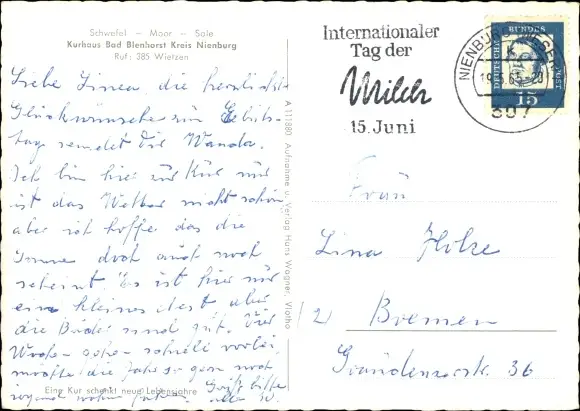 Schwefel – Moor – Sole
Kurhaus Bad Blenhorst Kreis Nienburg
Ruf: 385 Wietzen
Liebe Linea, die herzlichst
Glückwünsche zum Gebùts-
tage sendet Dir Wanda.
Ich bin hier zur Kur nur
ist das Wetter nicht schön
aber ich hoffe das die
Sonne doch auch noch
scheint. Es ist hier nur
ein kleines Nest aber
die Bäder sind gut. Vier
Woche gehe schnell vorbei
möchte die Jahr so gern noch
irgend wohin
Grüß bitte
alle W.
Eine Kur schenkt neue Lebensjahre
A 111880 Aufnahme u. Verlag Hans Wagner, Vlotho
Internationaler
Tag der
Milch
15. Juni
NIENBURG (WESER)
397
DEUTSCHE BUNDESPOST
15
Frau
Lina Holze
2 Bremen
Graudenzerstr. 36